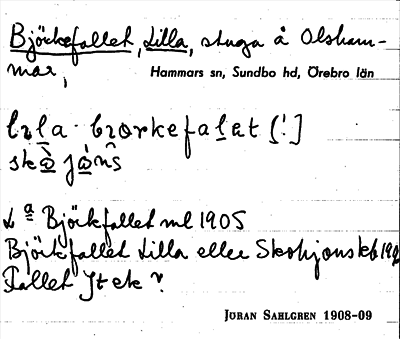 Björkefallet, Lilla, stuga å Olsham-
mar,
Hammars sn, Sundbo hd, Örebro län
lɩla bɩorkefalet [!]
skojons
↓ a Björkfallet ml 1905
Björkfallet Lilla eller Skohjons kb 190
Fallet Jt ek ?
JÖRAN SAHLGREN 1908-09